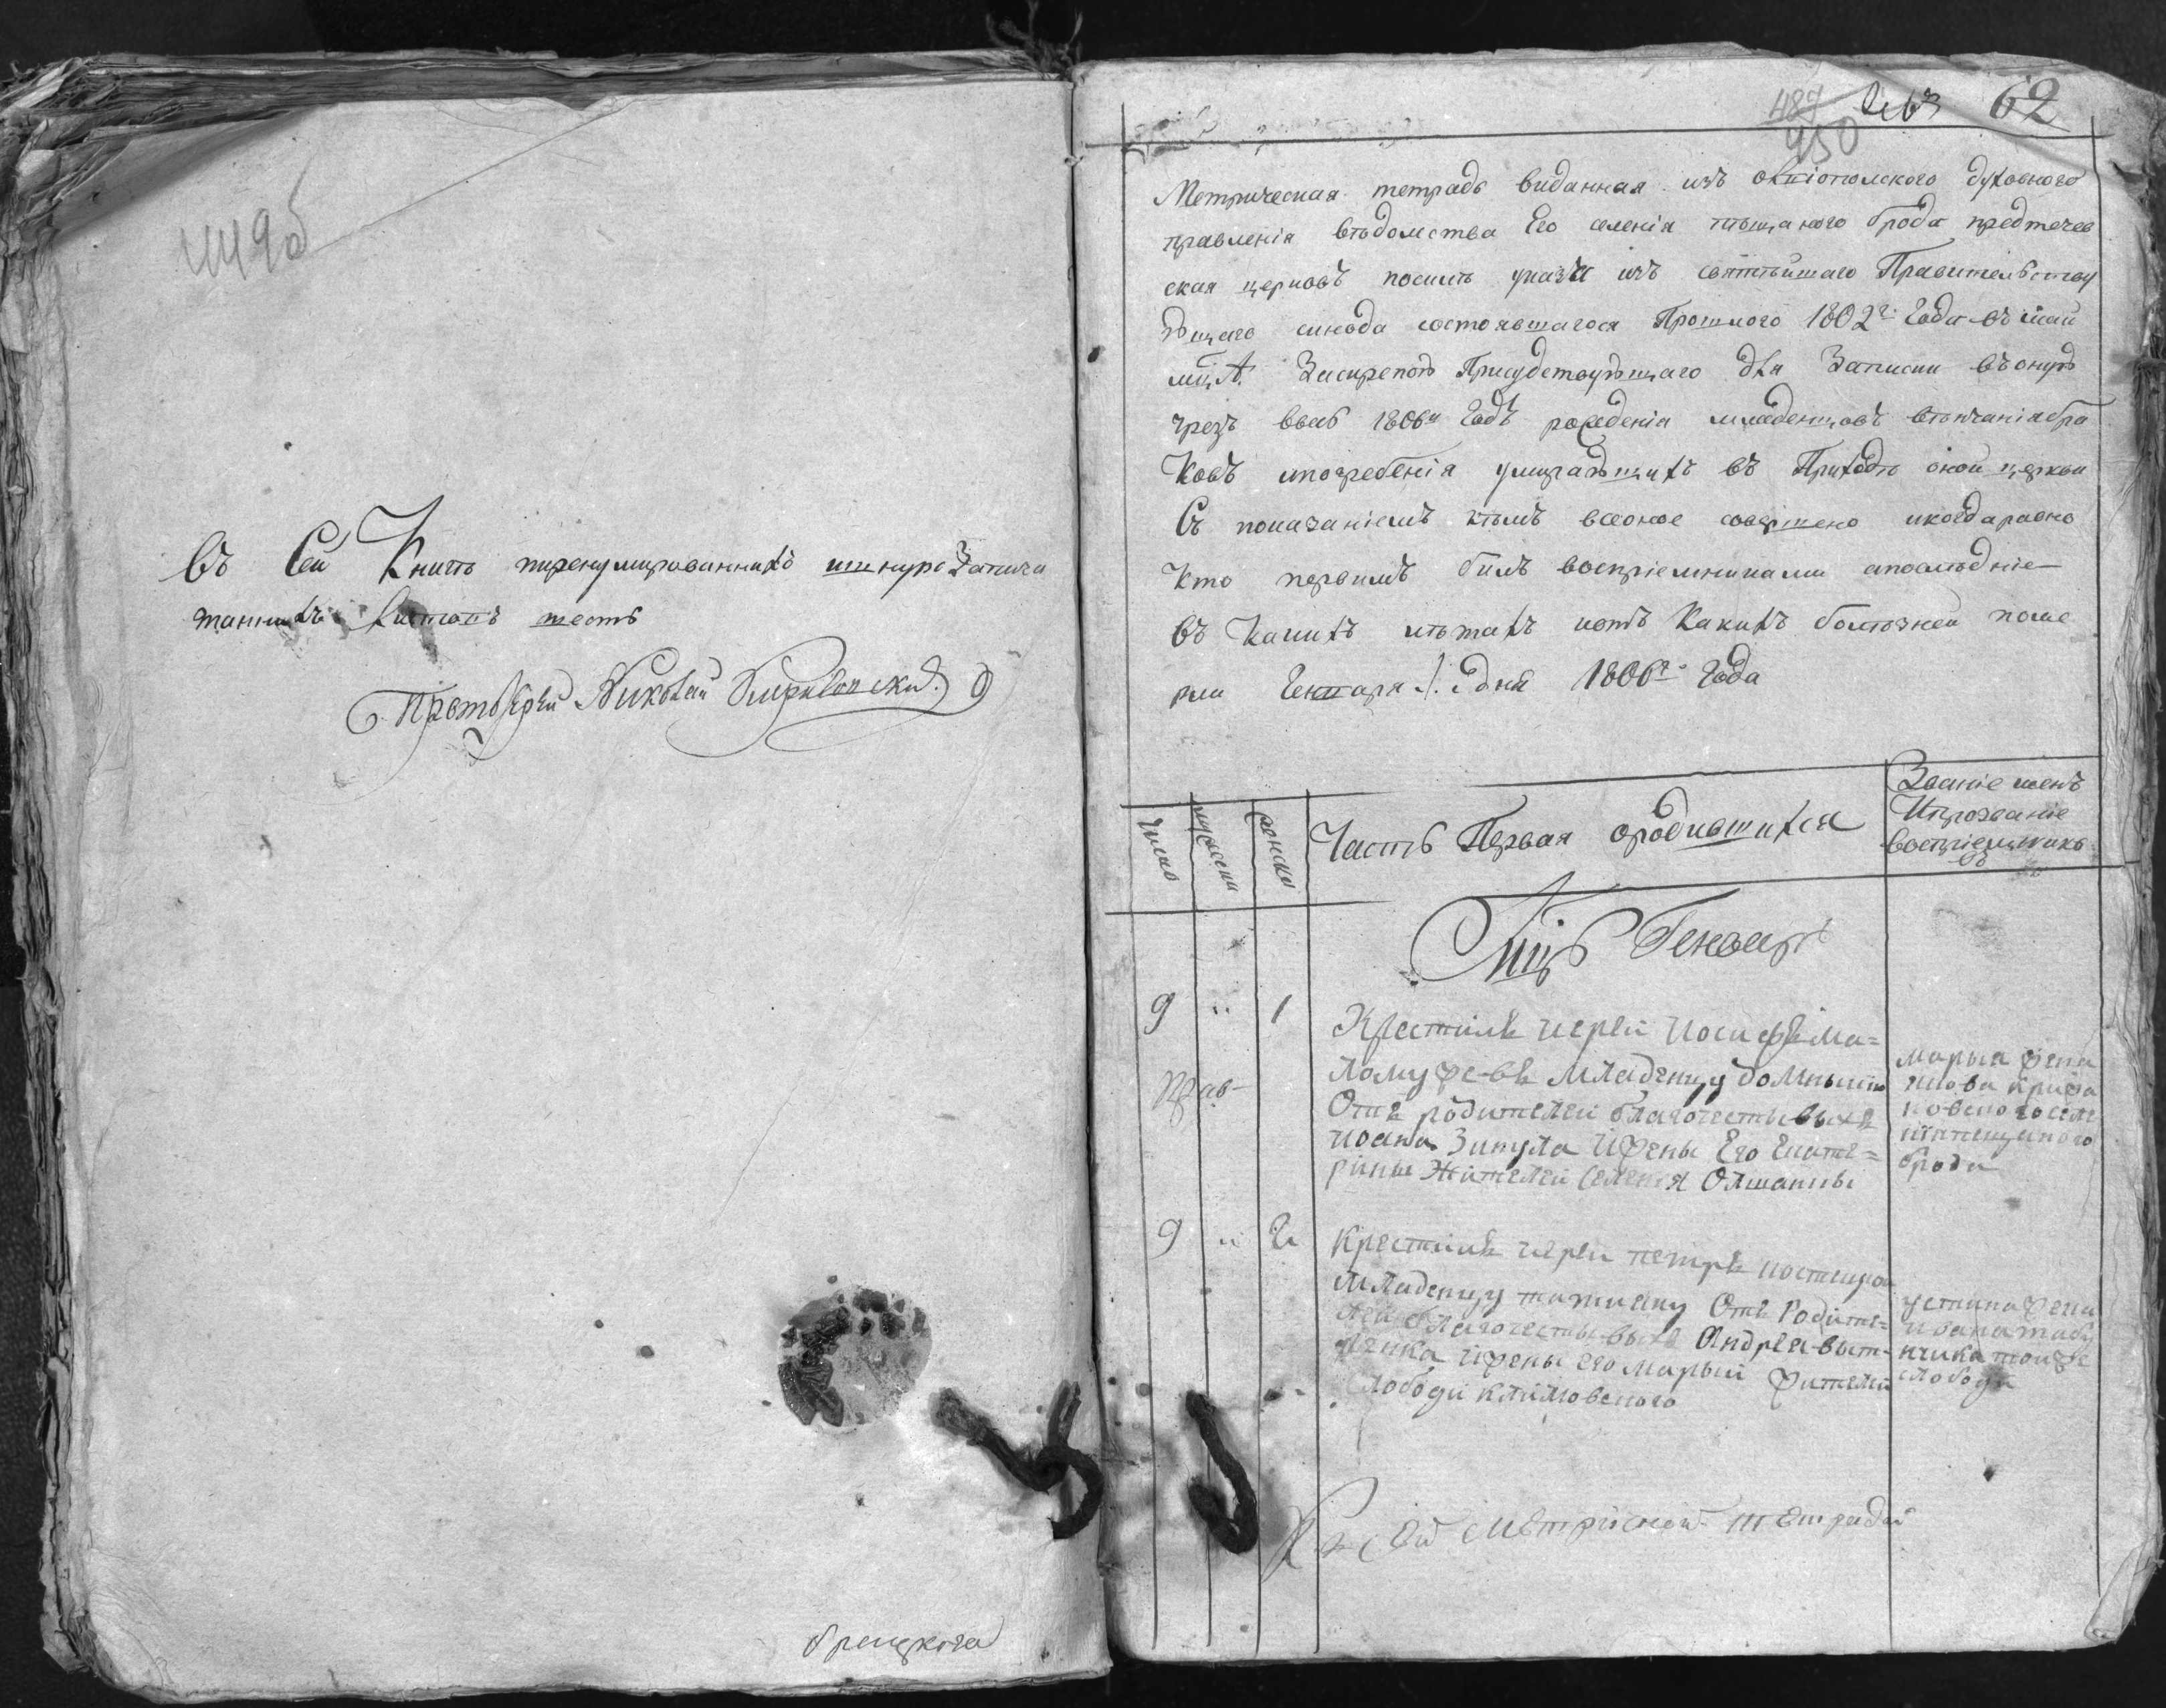 449б
Въ Сей Книге пренумированнихъ шнурозапеча
танныхъ листовъ шесть
Протоіерей Николай
62
487
450
Метрическая тетрадь виданная изъ олвіополского духовного
правленія ведомства Его селенія пещаного брода предтечев
ская церковъ посиле указа изъ святейшаго Правителству
ющаго синода состоявшагося Прошлого 1802г. Года въ маи
мцА За скрепою Присудствующаго для Записки въ оную
чрезъ ввесь 1806й Годъ рождения младенцовъ венчанія бра
ковъ ипогребенія умирающихъ въ Приходе оной церкви
Съ показаніемъ кемъ всеоное совершено икогда равно
Кто первимъ билъ воспріемниками апоследніе
въ Какихъ летахъ иотъ Какихъ болезней поме
рли Генваря 1. дня 1806г. Года
Число
мужеска
женска
Часть Первая ородившихся
Званіе имень
Ипрозваніе
воспріемниковъ
Мцъ Генварь
9 " 1
Крестилъ иерей иосифъ ма=
ломужевъ младеницу домникию
Отъ родителей благочестывыхъ
иоана Зинула Ижены Его Екате=
рины Жителей Селения Олшанки
марыя жена
новского селе
нія пещаного
брода
9 " 2
Крестилъ иерей петръ
младеницу татияну Отъ Родите=
лей благочестывыхъ Андрея
ижены его марыи жителей
слободи клинового
устина жена
ивана
тойже
слободи
Къ Сей метрыской тетради